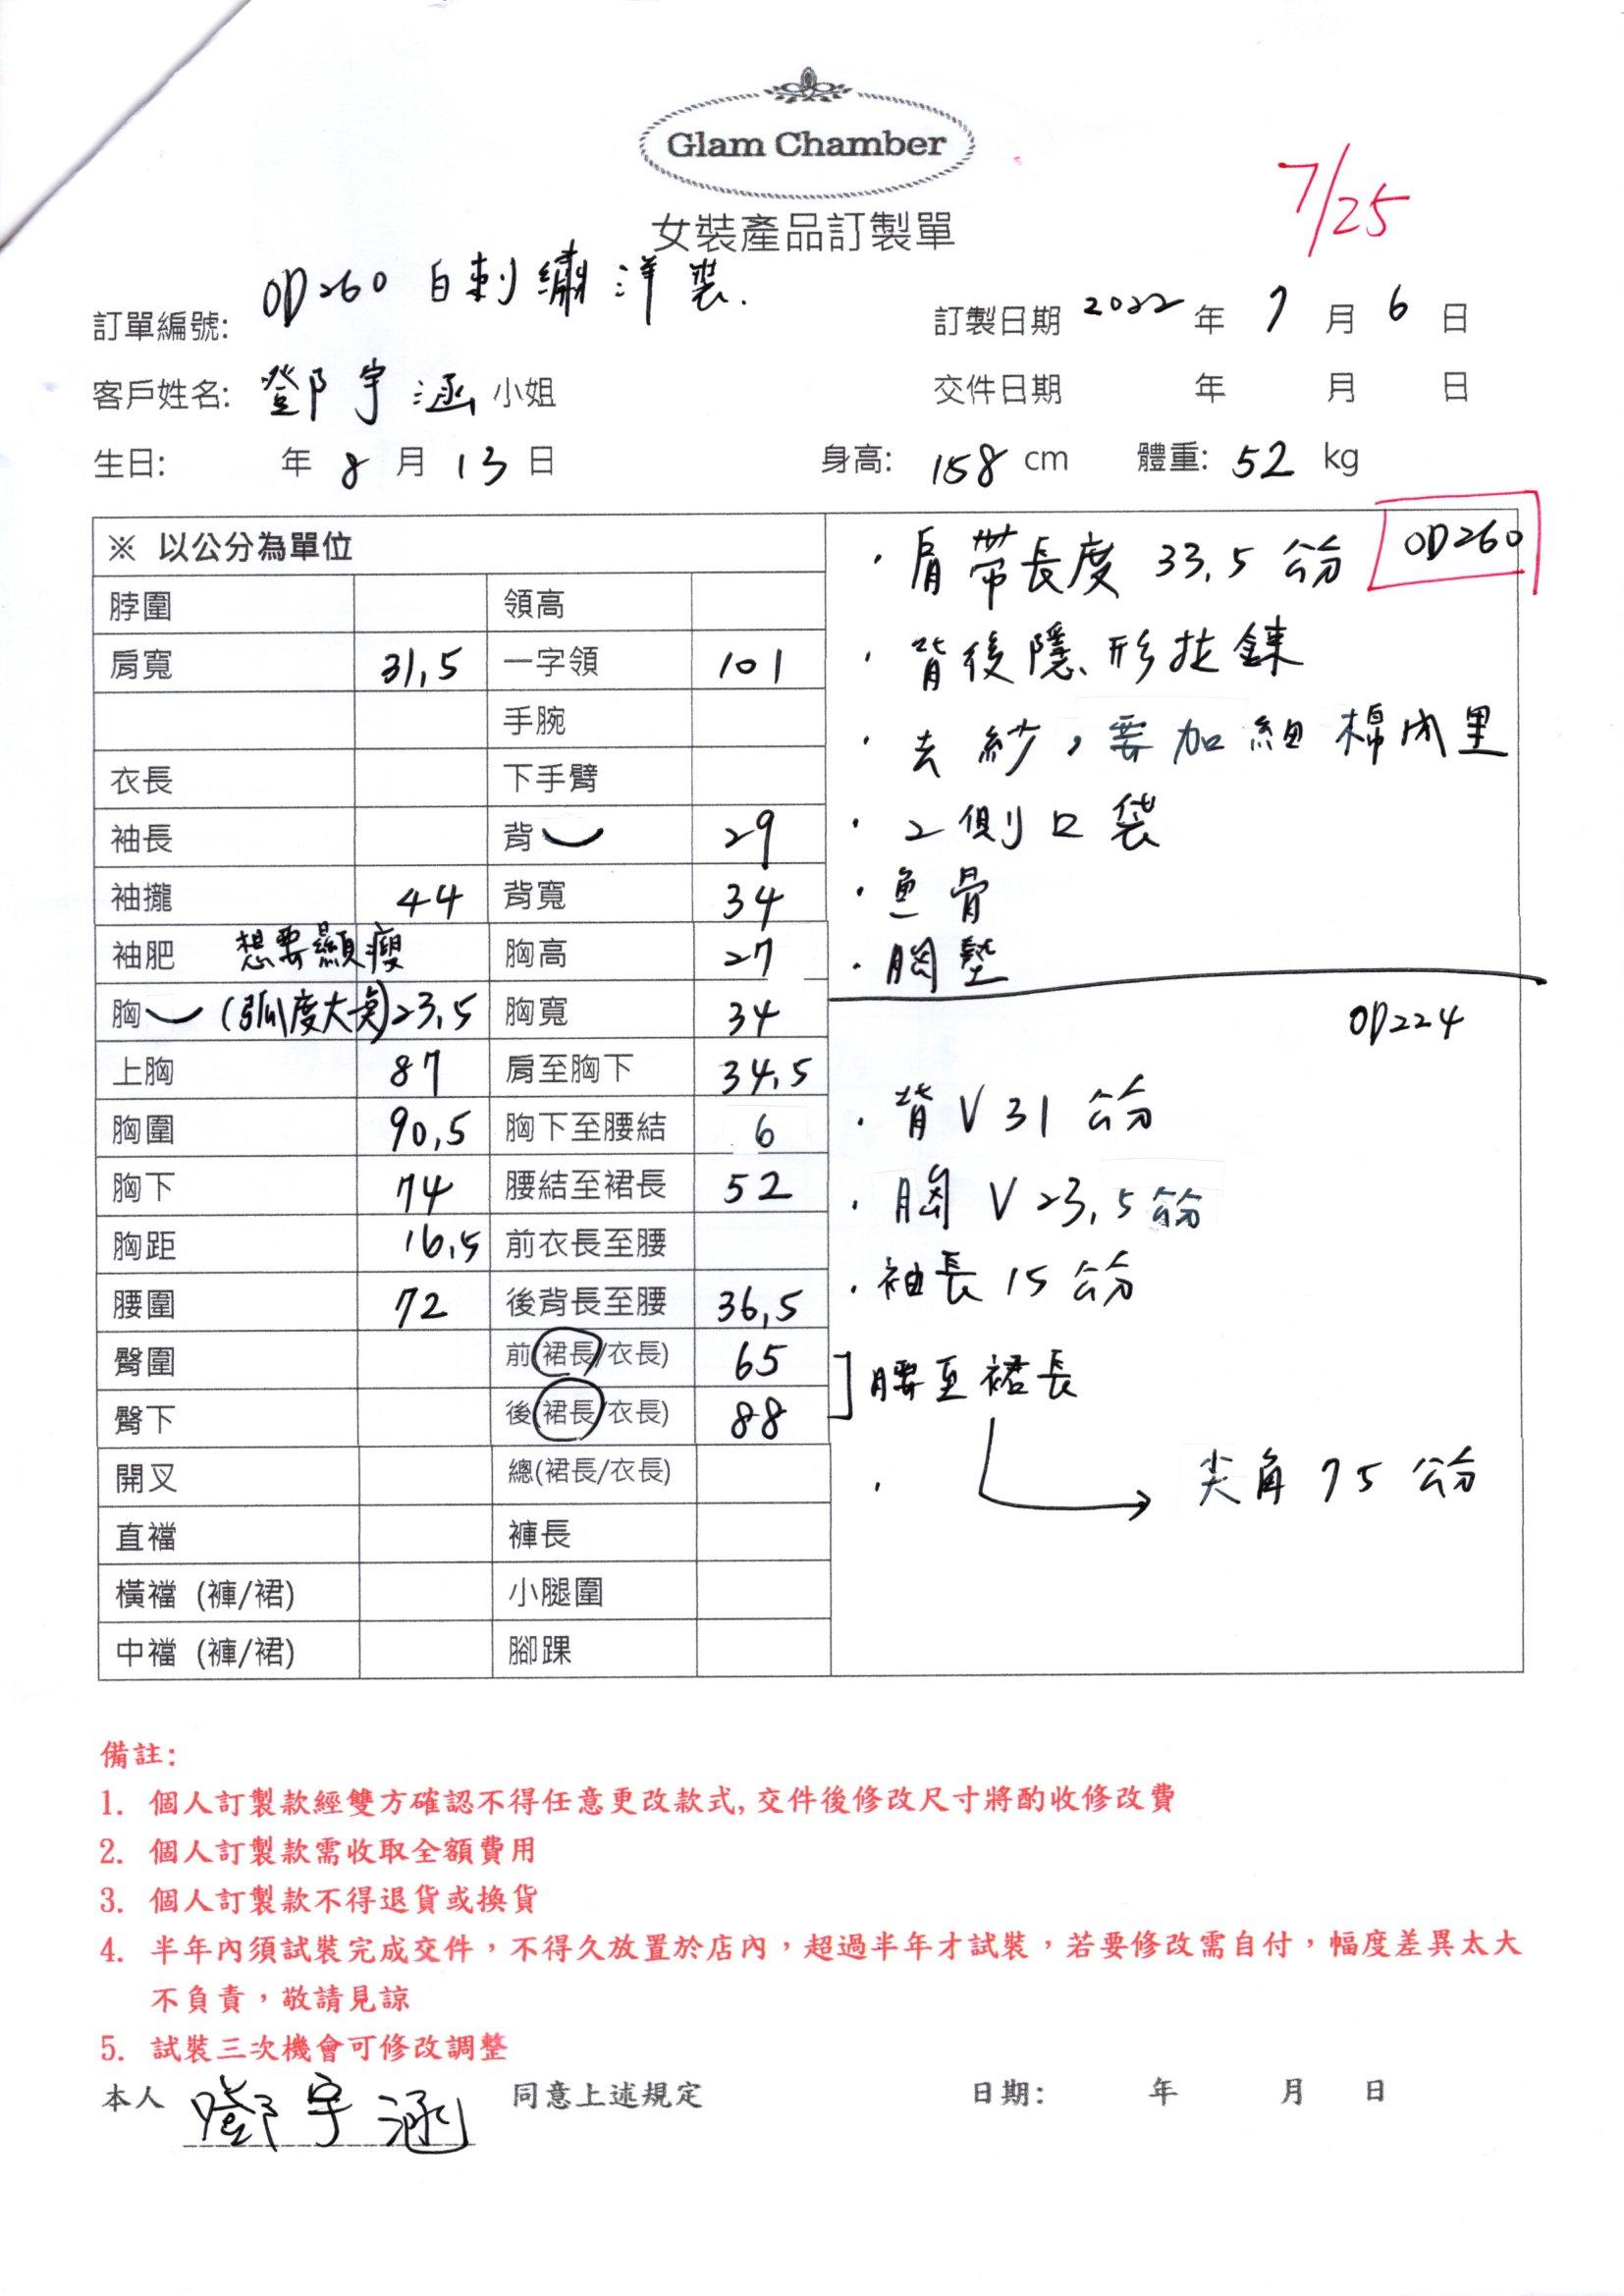 Glam Chamber
女裝產品訂製單
7/25
訂單編號: OD260 白刺繡洋裝.
訂製日期 2022 年 7 月 6 日
客戶姓名: 鄧宇涵 小姐
交件日期 年 月 日
生日: 年 8 月 13 日
身高: 158 cm 體重: 52 kg
※ 以公分為單位
脖圍 領高
肩寬 31,5 一字領 101
手腕
衣長 下手臂
袖長 背 29
袖攏 44 背寬 34
袖肥 想要顯瘦 胸高 27
胸 (弧度大美) 23,5 胸寬 34
上胸 87 肩至胸下 34,5
胸圍 90,5 胸下至腰結 6
胸下 74 腰結至裙長 52
胸距 16,5 前衣長至腰
腰圍 72 後背長至腰 36,5
臀圍 前(裙長/衣長) 65
臀下 後(裙長/衣長) 88
開叉 總(裙長/衣長)
直襠 褲長
橫襠 (褲/裙) 小腿圍
中襠 (褲/裙) 腳踝
OD260
· 肩帶長度 33,5 公分
· 背後隱形拉鍊
· 去紗,要加細棉內里
· 2側口袋
· 魚骨
· 胸墊
OD224
· 背V 31 公分
· 胸V 23,5 公分
· 袖長 15 公分
腰至裙長
· 尖角 75 公分
備註:
1. 個人訂製款經雙方確認不得任意更改款式,交件後修改尺寸將酌收修改費
2. 個人訂製款需收取全額費用
3. 個人訂製款不得退貨或換貨
4. 半年內須試裝完成交件,不得久放置於店內,超過半年才試裝,若要修改需自付,幅度差異太大
不負責,敬請見諒
5. 試裝三次機會可修改調整
本人 鄧宇涵 同意上述規定 日期: 年 月 日